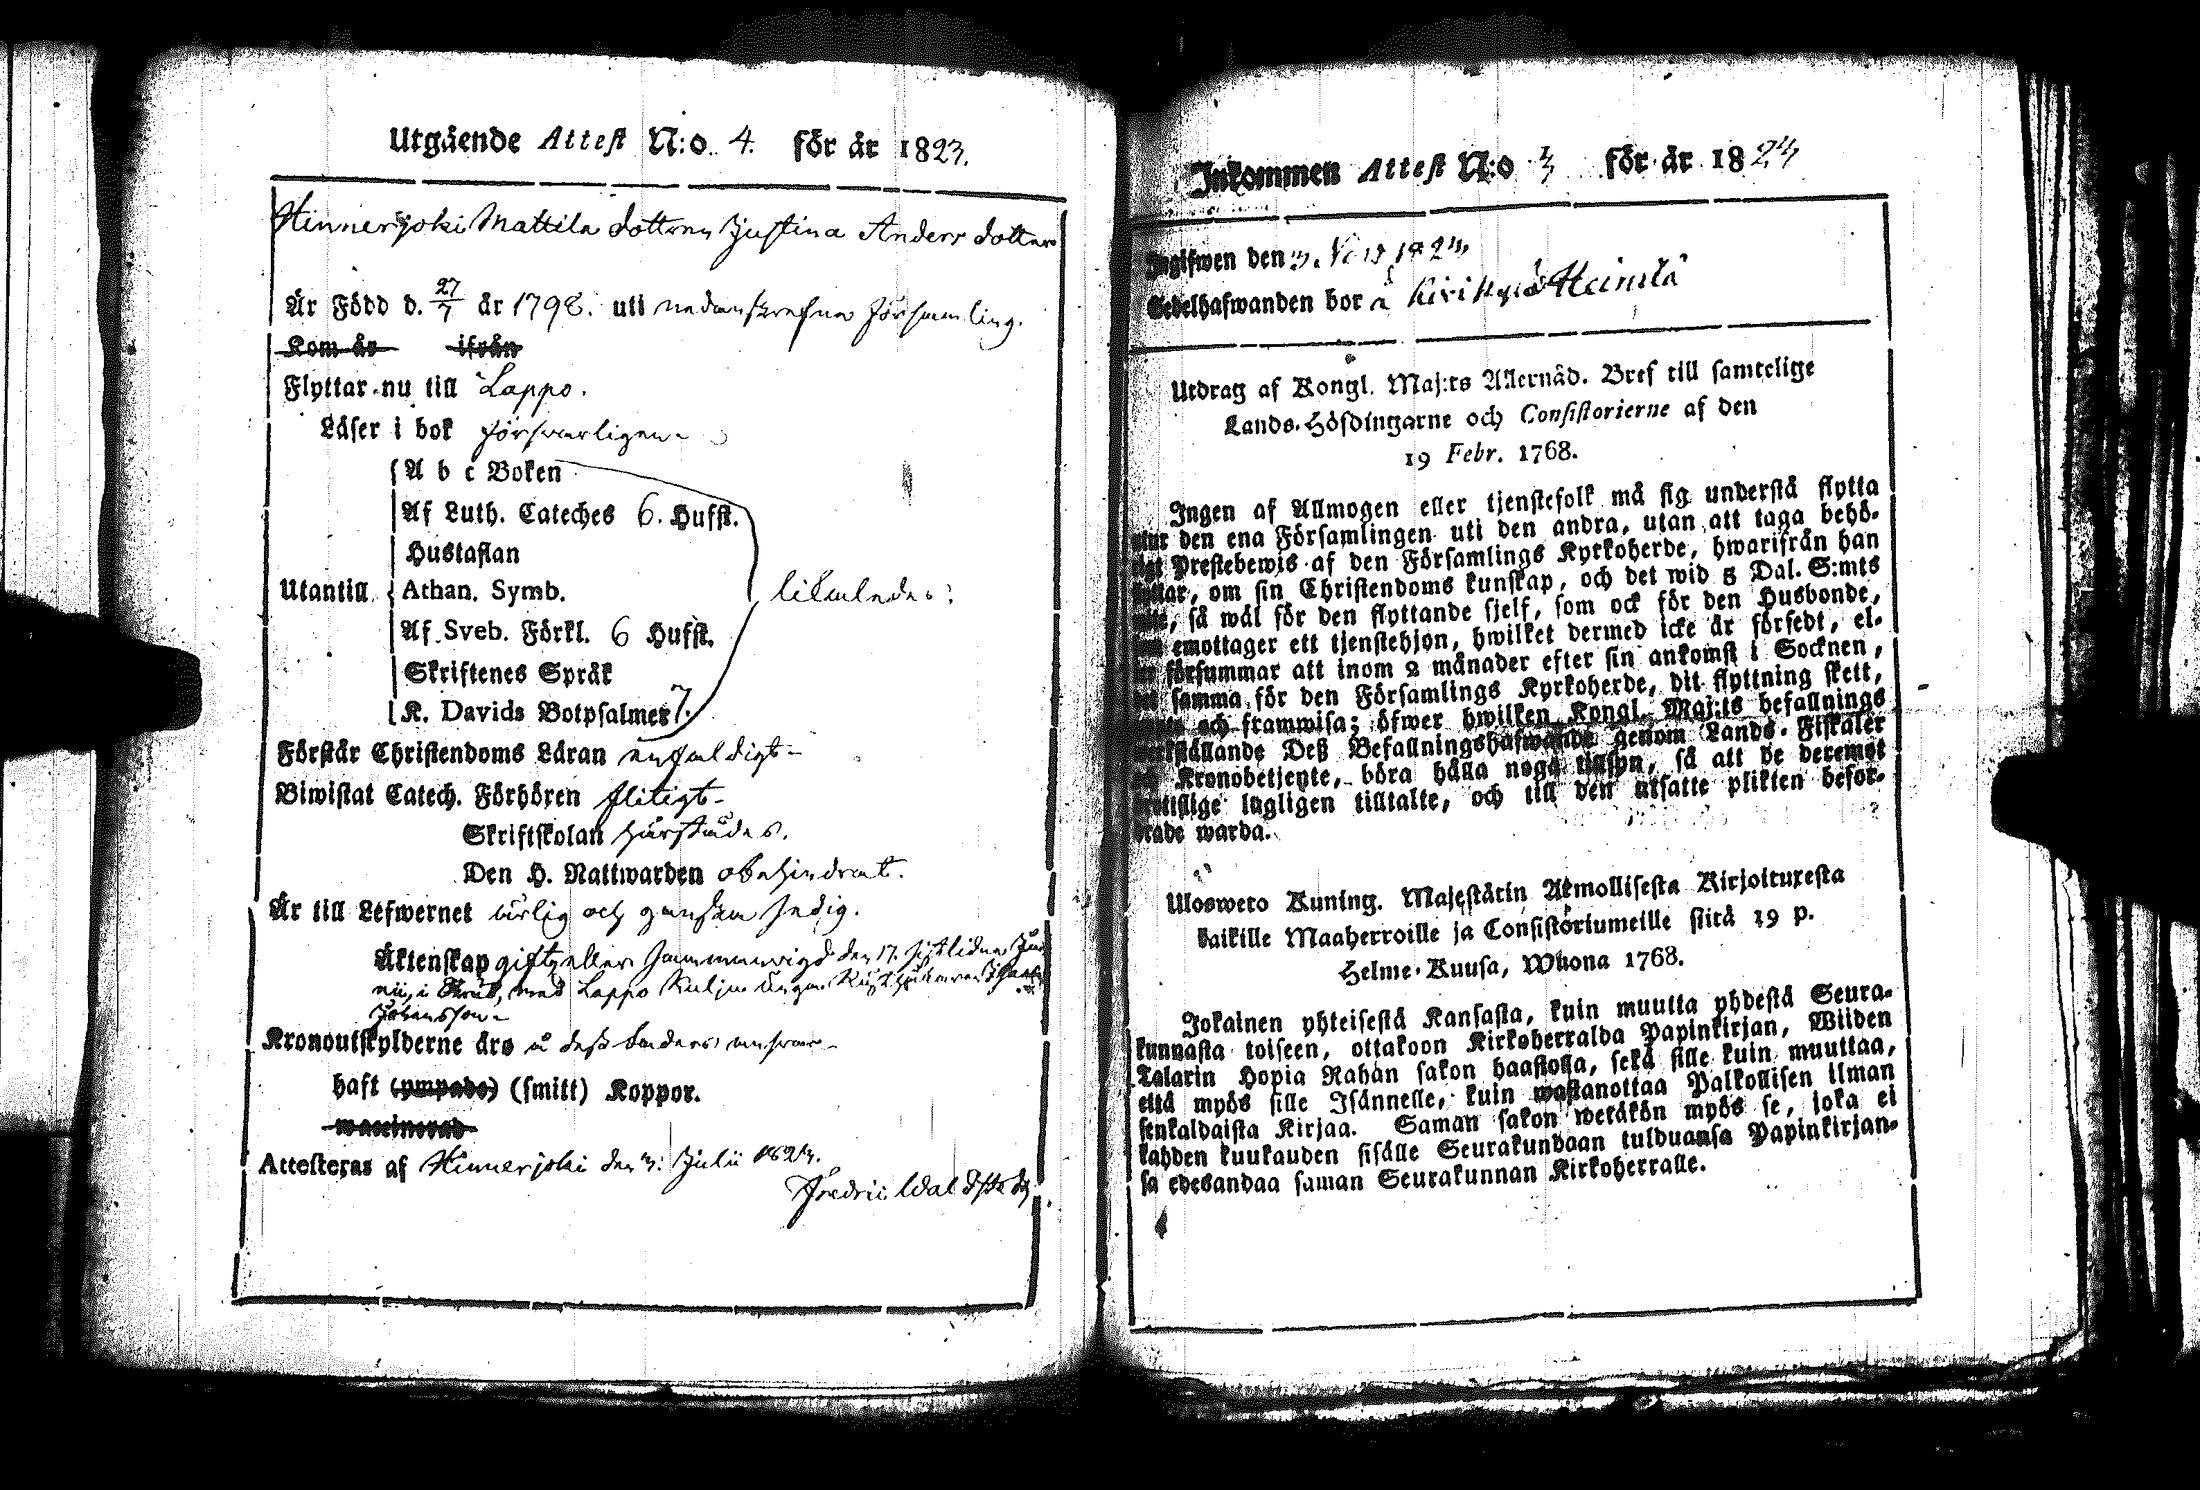 Utgående Attest N:o. 4. för år 1823.
Hinnerjoki Mattila dottren Justina Anders dotter
Är Född d. 27/7 år 1798. uti nedanskrefne församling.
Kom år ifrån
Flyttar nu till Lappo.
Läser i bok försvarligen
A b c Boken
Af Luth. Cateches 6. Hufst.
Hustaflan
Utantill Athan. Symb. likaledes:
Af Sveb. Förkl. 6 Hufst.
Skriftenes Språk
K. Davids Botpsalmer 7.
Förstår Christendoms Läran enfaldigt-
Biwistat Catech. Förhören flitigt-
Skriftskolan härstädes.
Den H. Nattwarden obehindrat.
Är till Lefwernet ärlig och ganska sedig.
Äktenskap gift, eller sammanvigd den 17. sistlidne Ju
nii, i med Lappo unga
Johansson-
Kronoutskylderne äro å dess faders ansvar-
haft (ympade) (smitt) Koppor.
waccinerad
Attesteras af Hinnerjoki den 3. Julii 1823.
Fredric
Inkommen Attest N:o 3 för år 1823
Ingifwen den 3. Nov 1823
Sedelhafwanden bor å Heinilä
Utdrag af Kongl. Maj:ts Allernåd. Bref till samtelige
Lands-Höfdingarne och Consistorierne af den
19 Febr. 1768.
Ingen af Allmogen eller tjenstefolk må sig understå flytta
utur den ena Församlingen uti den andra, utan att taga behö-
rigt Prestebewis af den Församlings Kyrkoherde, hwarifrån han
flyttar, om sin Christendoms kunskap, och det wid 5 Dal. S:mts
wite, så wäl för den flyttande sjelf, som ock för den Husbonde,
som emottager ett tjenstehjon, hwilket dermed icke är försedt, el-
ler försummar att inom 2 månader efter sin ankomst i Socknen,
det samma för den Församlings Kyrkoherde, dit flyttning skett,
och frammisa; öfwer hwilken Kongl. Maj:ts befallnings
werkställande Deß Befallningshafwande genom Lands-Fiskaler
och Kronobetjente, böra hålla noga tillsyn, så att de deremot
brottslige lagligen tilltalte, och till den utsatte plikten befor-
drade warda.
Ulosweto Kuning. Majestätin Armollisesta Kirjoituxesta
kaikille Maaherroille ja Consistoriumeille siitä 19 p.
Helme-Kuusa, Wuona 1768.
Jokainen yhteisestä Kansasta, kuin muutta yhdestä Seura-
kunnasta toiseen, ottakoon Kirkoherralda Papinkirjan, Wiiden
Talarin Hopia Rahan sakon haastolla, sekä sille kuin muuttaa,
että myös sille Isännelle, kuin wastanottaa Palkollisen ilman
senkaldaista Kirjaa. Saman sakon wetäkön myös se, joka ei
kahden kuukauden sisälle Seurakundaan tulduansa Papinkirjan-
sa edesandaa saman Seurakunnan Kirkoherralle.